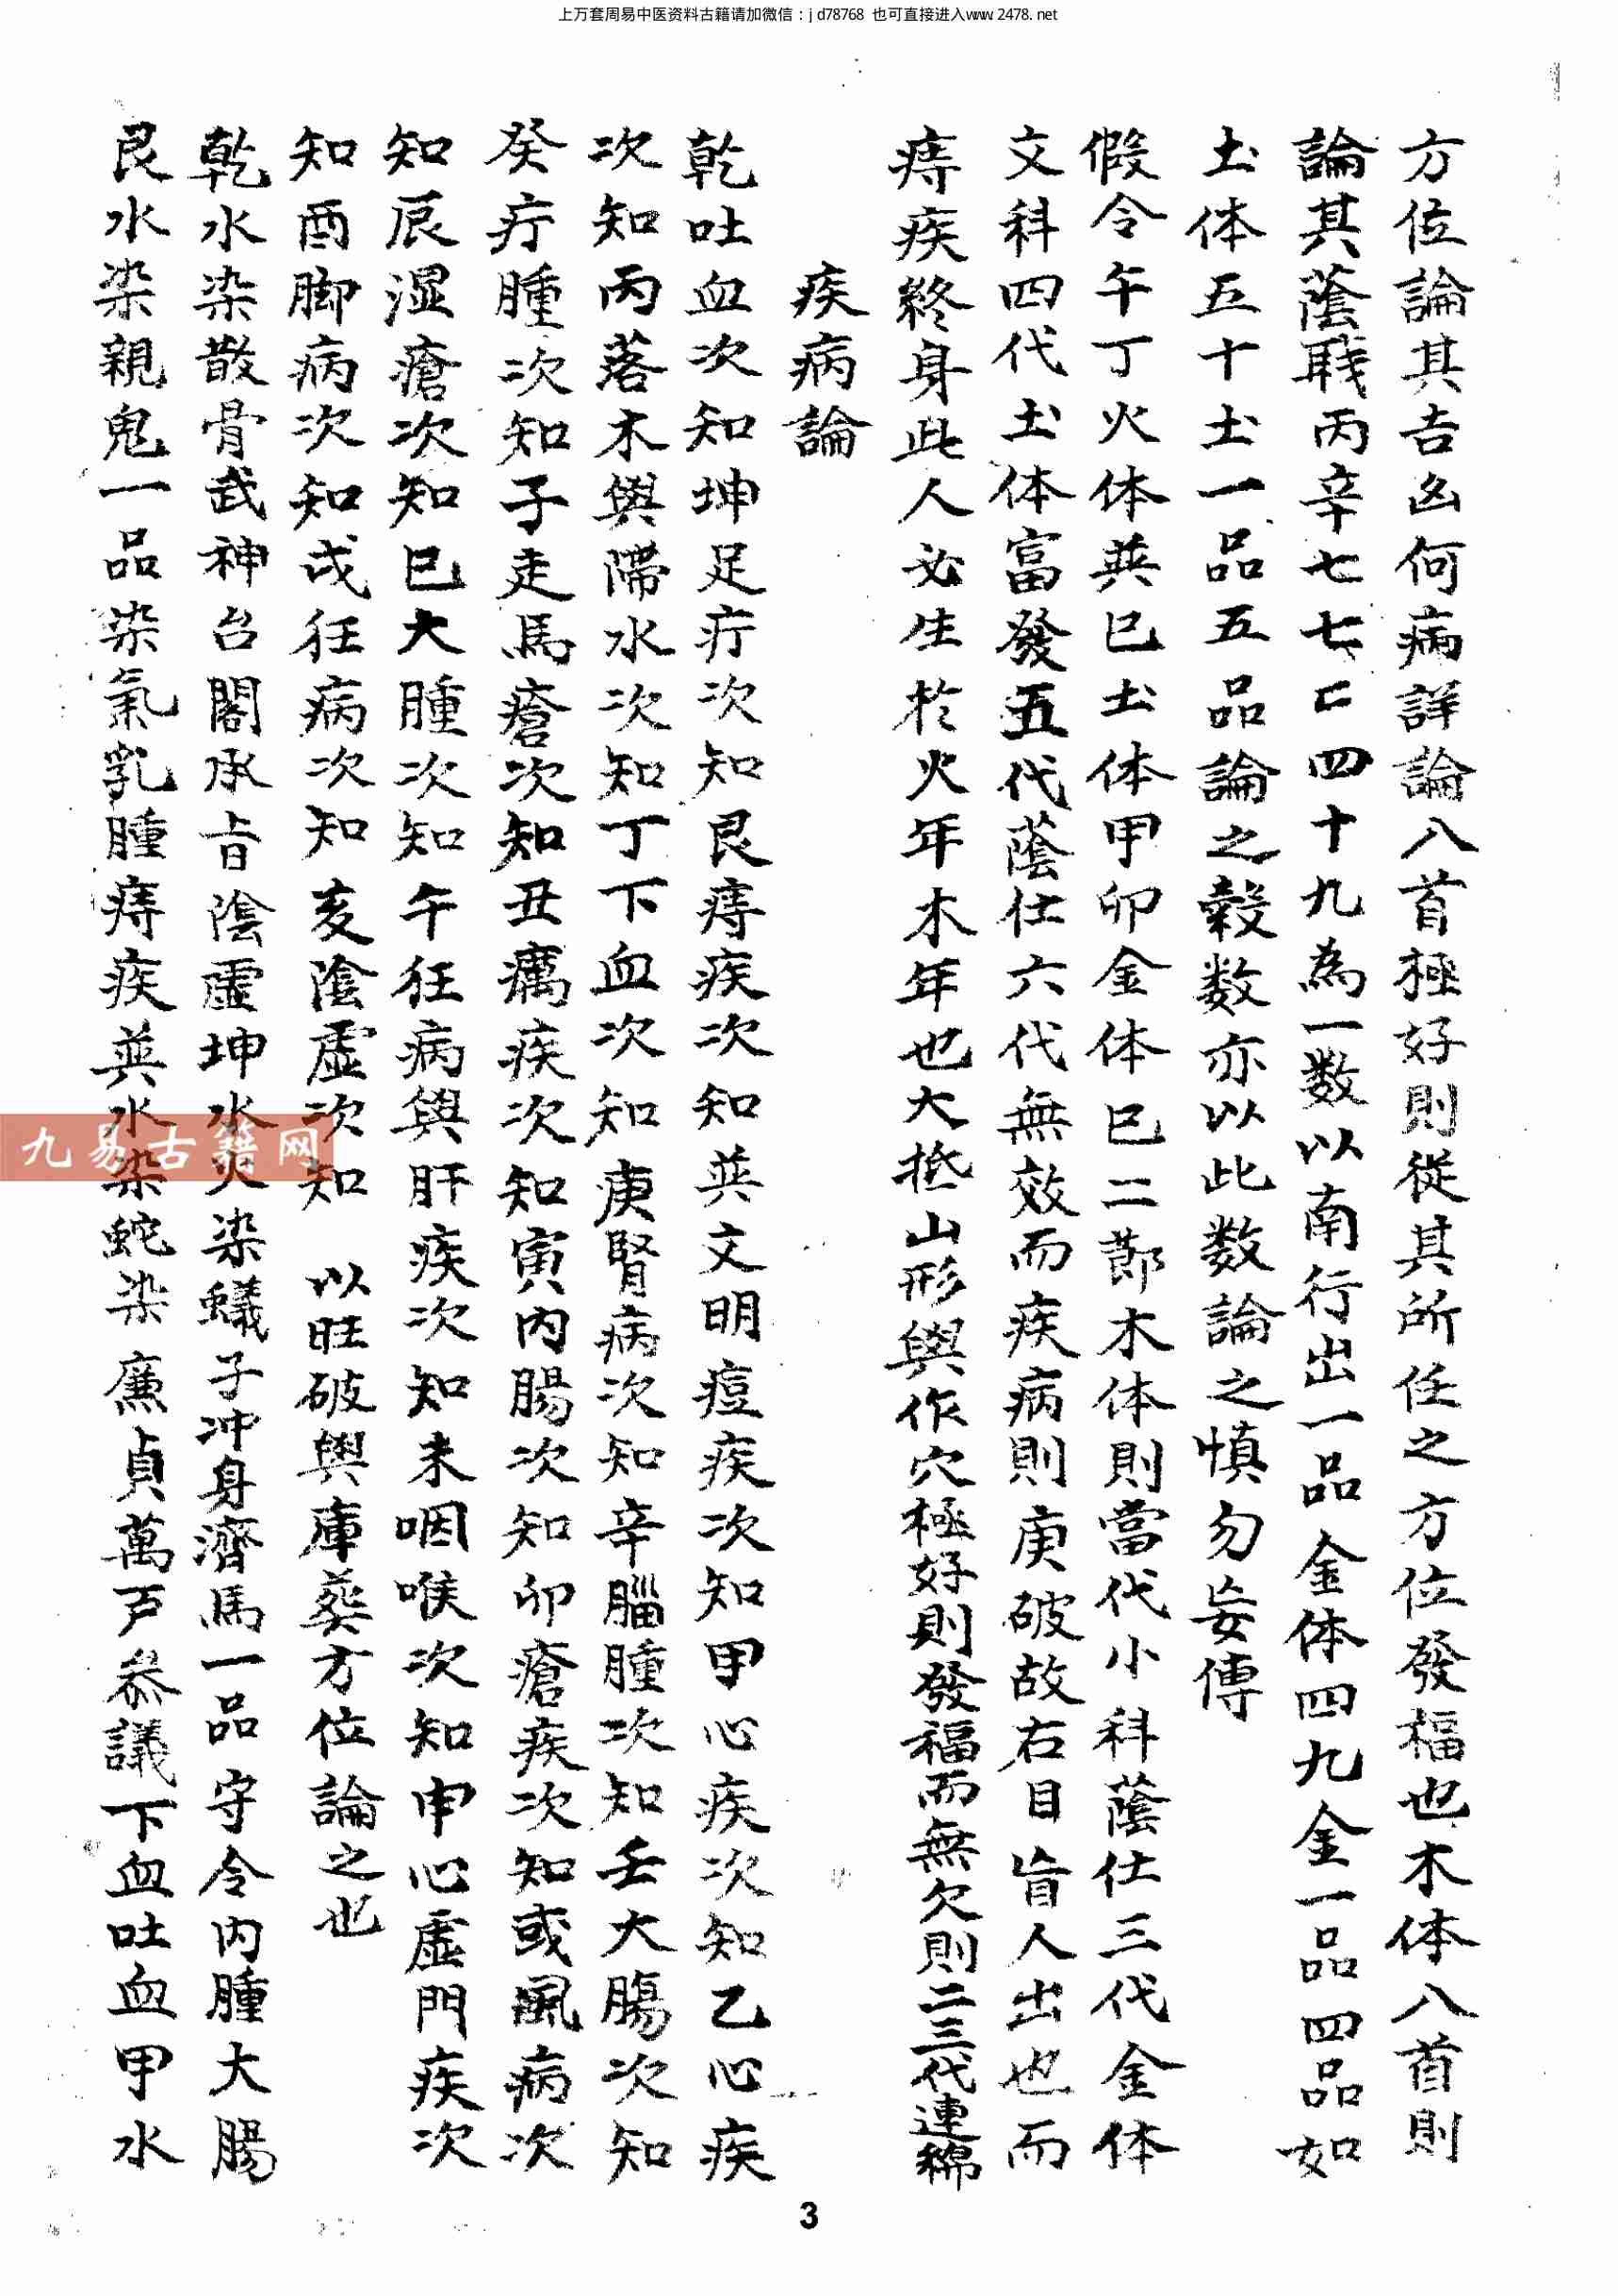 上万套周易中医资料古籍请加微信：jd78768 也可直接进入www.2478.net
方位論其吉凶何病詳論八首極好則從其所任之方位發福也木体八首則
論其蔭戝丙辛七七七匚四十九為一数以南行出一品金体四九金一品四品如
土体五十土一品五品論之穀数亦以此数論之慎勿妄傳
假令午丁火体英巳土体甲卯金体巳二節木体則當代小科蔭仕三代金体
文科四代土体富發五代蔭仕六代無效而疾病則庚破故右目盲人出也而
痔疾終身此人必生於火年木年也大抵山形與作穴極好則發福而無欠則二三代連綿
疾病論
乾吐血次知坤足疔次知艮痔疾次知英文明痘疾次知甲心疾次知乙心疾
次知丙落木與滯水次知丁下血次知庚腎病次知辛腦腫次知壬大腸次知
癸疔腫次知子走馬瘡次知丑癘疾次知寅內腸次知卯瘡疾次知或風病次
知辰湿瘡次知巳大腫次知午狂病與肝疾次知未咽喉次知申心虛門疾次
知酉脚病次知戌狂病次知亥陰虛次知 以旺破與庫葵方位論之也
乾水染散骨武神台閣承旨陰虛坤水火染蟻子冲身濟馬一品守令內腫大腸
艮水染親鬼一品染氣乳腫痔疾英水染蛇染廉貞萬戶叅議下血吐血甲水
九易古籍网
3